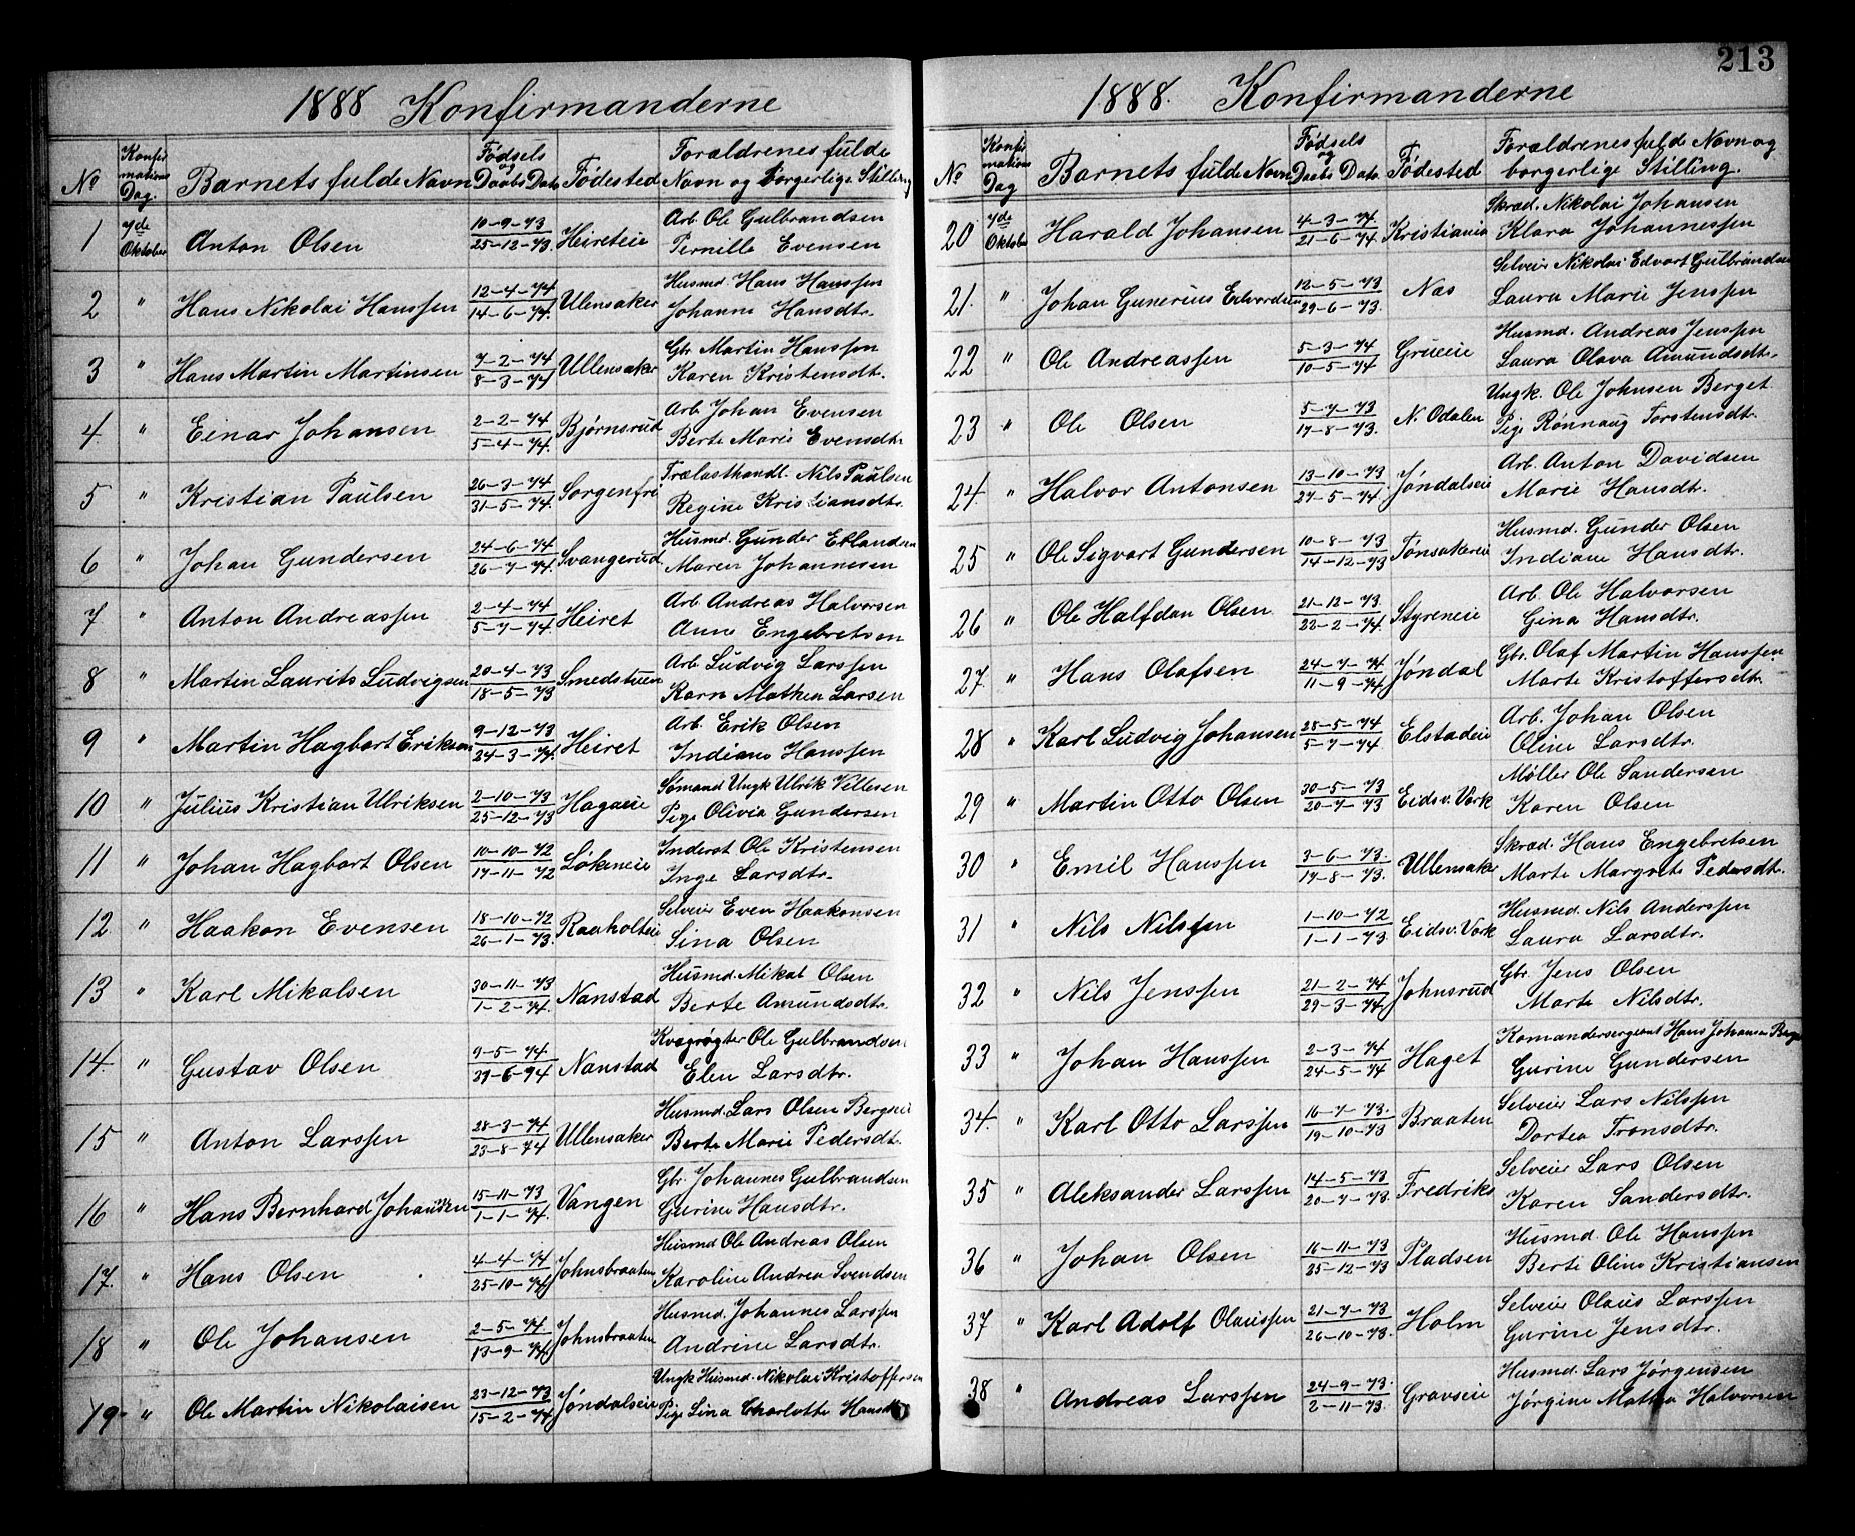 1888 Konfirmanderne
No Konfirmations Dag. Barnets fulde Navn Fødsels og Daabs Dato Fødested Forældrenes fulde Navn og borgerlige Stilling
1 7de Oktober Anton Olsen 10-9-73 25-12-73 Heireteie Arb. Ole Gulbrandsen
Pernille Evensen
2 " Hans Nikolai Hanssen 12-4-74 14-6-74. Ulensaker Husmd. Hans Hanssen
Johanne Hansdtr.
3 " Hans Martin Martinsen 7-2-74 8-3-74 Ullensaker Gbr. Martin Hanssen
Karen Kristensdt.
4. " Einar Johansen 2-2-74 5-4-74. Bjørnsrud Arb. Johan Evensen
Berte Marie Evensdtr
5 " Kristian Paulsen 26-3-74 31-5-74. Sorgenfri Trælasthandl. Nils Paulsen
Regine Kristiansdtr.
6 " Johan Gundersen 24-6-74 26-7-74. Svangerud. Husmd. Gunder Erlandsen
Maren Johannesen
7 " Anton Andreassen 2-4-74 5-7-74. Heiret Arb. Andreas Halvorsen
Anne Engebretsen
8 " Martin Laurits Ludvigsen 20-4-73 18-5-73 Smedstuen Arb. Ludvig Larssen
Karn Mathea Larsen
9 " Martin Hagbart Eriksen 9-12-73 24-3-74. Heiret Arb. Erik Olsen
Indiane Hanssen
10 " Julius Kristian Ulriksen 2-10-73 25-12-73 Hagaeie Sømand Ungk Ulrik Villesen
Pige Olivia Gundersen
11 " Johan Hagbart Olsen 10-10-72 17-11-72 Løkeneie Inderst Ole Kristensen
Inge Larsdtr.
12 " Haakon Evensen 18-10-72 26-1-73. Raaholteie Selveier Even Haakonsen
Lina Olsen
13 " Karl Mikalsen 30-11-73 1-2-74. Nanstad Husmd. Mikal Olsen
Berte Amundsdtr.
14. " Gustav Olsen 9-5-74 29-6-94 Nanstad Kvægrøgter Ole Gulbrandsen
Elen Larsdtr.
15 " Anton Larssen 28-3-74 23-8-74 Ullensaker Husmd. Lars Olsen Bergseie
Berte Marie Pedersdt.
16 " Hans Bernhard Johansen 15-11-73 1-1-74. Vangen Gbr. Johannes Gulbrandsen
Gurine Hansdtr.
17. " Hans Olsen 4-4-74 25-10-74 Johnsbraaten Husmd Ole Andreas Olsen
Karoline Andrea Svendsen
18 " Ole Johansen 2-5-74. 13-9-74. Johnsbraaten Husmd. Johannes Larssen
Andrine Larsdtr.
19 " Ole Martin Nikolaisen 23-12-73 15-2-74 Jøndalseie Ungk Husmd. Nikolai Kristoffersen
Pige Lina Charlotte Hansdtr
213
1888. Konfirmanderne
No Konfirmations Dag Barnets fulde Navn Fødsels og Daabs Dato. Fødested Forældrenes fulde Navn og borgerlige Stilling.
20 7de Oktober Harald Johansen 4-3-74. 21-6-74. Kristiania Skræd. Nikolai Johansen
Klara Johannessen
21. " Johan Gunerius Edvardsen 12-5-73 29-6-73. Næs Selveier Nikolai Edvart Gulbrandsen
Laura Marie Jenssen
22 " Ole Andreassen 5-3-74 10-5-74 Grueeie Husmd. Andreas Jenssen
Laura Olava Amundsdtr.
23 " Ole Olsen 5-7-73 17-8-73. N. Odalen Ungk. Ole Johnsen Berget
Pige Rønnaug Torstensdt.
24. " Halvor Antonsen 13-10-73 27-5-74. Jøndalseie Arb. Anton Davidsen
Marie Hansdtr.
25 " Ole Sigvart Gundersen 10-8-73 14-12-73 Tønsakereie Husmd. Gunder Olsen
Indiane Hansdtr.
26 " Ole Halfdan Olsen 21-12-73 22-2-74. Styreneie Arb. Ole Halvorsen
Gina Hansdtr.
27. " Hans Olafsen 24-7-74 11-9-74 Jøndal Gbr. Olaf Martin Hanssen.
Marte Kristoffersdtr.
28 " Karl Ludvig Johansen 28-5-74 5-7-74. Elstadeie Arb. Johan Olsen
Oline Larsdtr.
29 " Martin Otto Olsen 30-5-73 20-7-73 Eidsv. Værk Møller Ole Sandersen
Karen Olsen
30 " Emil Hanssen 3-6-73. 17-8-73. Ullensaker Skræd. Hans Engebretsen
Marte Margrete Pedersdt.
31 " Nils Nilssen 1-10-72 1-1-73. Eidsv. Værk Husmd. Nils Anderssen
Laura Larsdtr.
32 " Nils Jenssen 21-2-74 29-3-74. Johnsrud Gbr. Jens Olsen
Marte Nilsdtr.
33 " Johan Hanssen 2-3-74 24-5-74 Haget Komandersergeant Hans Johansen Berge
Gurine Gundersen
34. " Karl Otto Larssen 16-7-73. 19-10-73 Braaten Selveier Lars Nilssen
Dortea Tronsdtr.
35 " Aleksander Larssen 14-5-73 20-7-73. Fredriks Selveier Lars Olsen
Karen Sandersdtr.
36 " Johan Olsen 16-11-73 25-12-73 Pladsen Husmd. Ole Hanssen
Berte Oline Kristiansen
37 " Karl Adolf Olaussen 21-7-73 26-10-73. Holm Selveier Olaus Larssen
Gurine Jensdtr.
38 " Andreas Larssen 24-9-73. 2-11-73. Gravseie Husmd. Lars Jørgensen
Jørgine Mathea Halvorsen